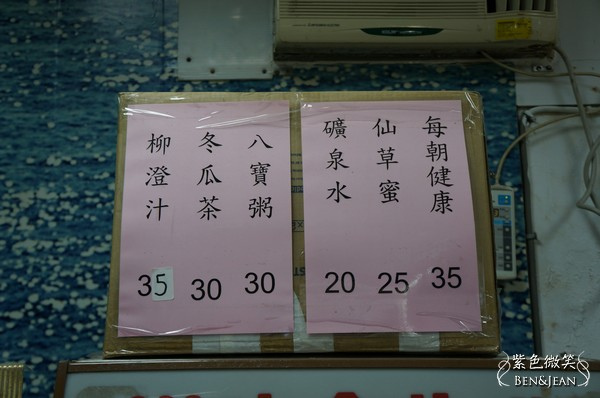 每朝健康 35
仙草蜜 25
礦泉水 20
八寶粥 30
冬瓜茶 30
柳澄汁 35
紫色微笑
BEN&JEAN